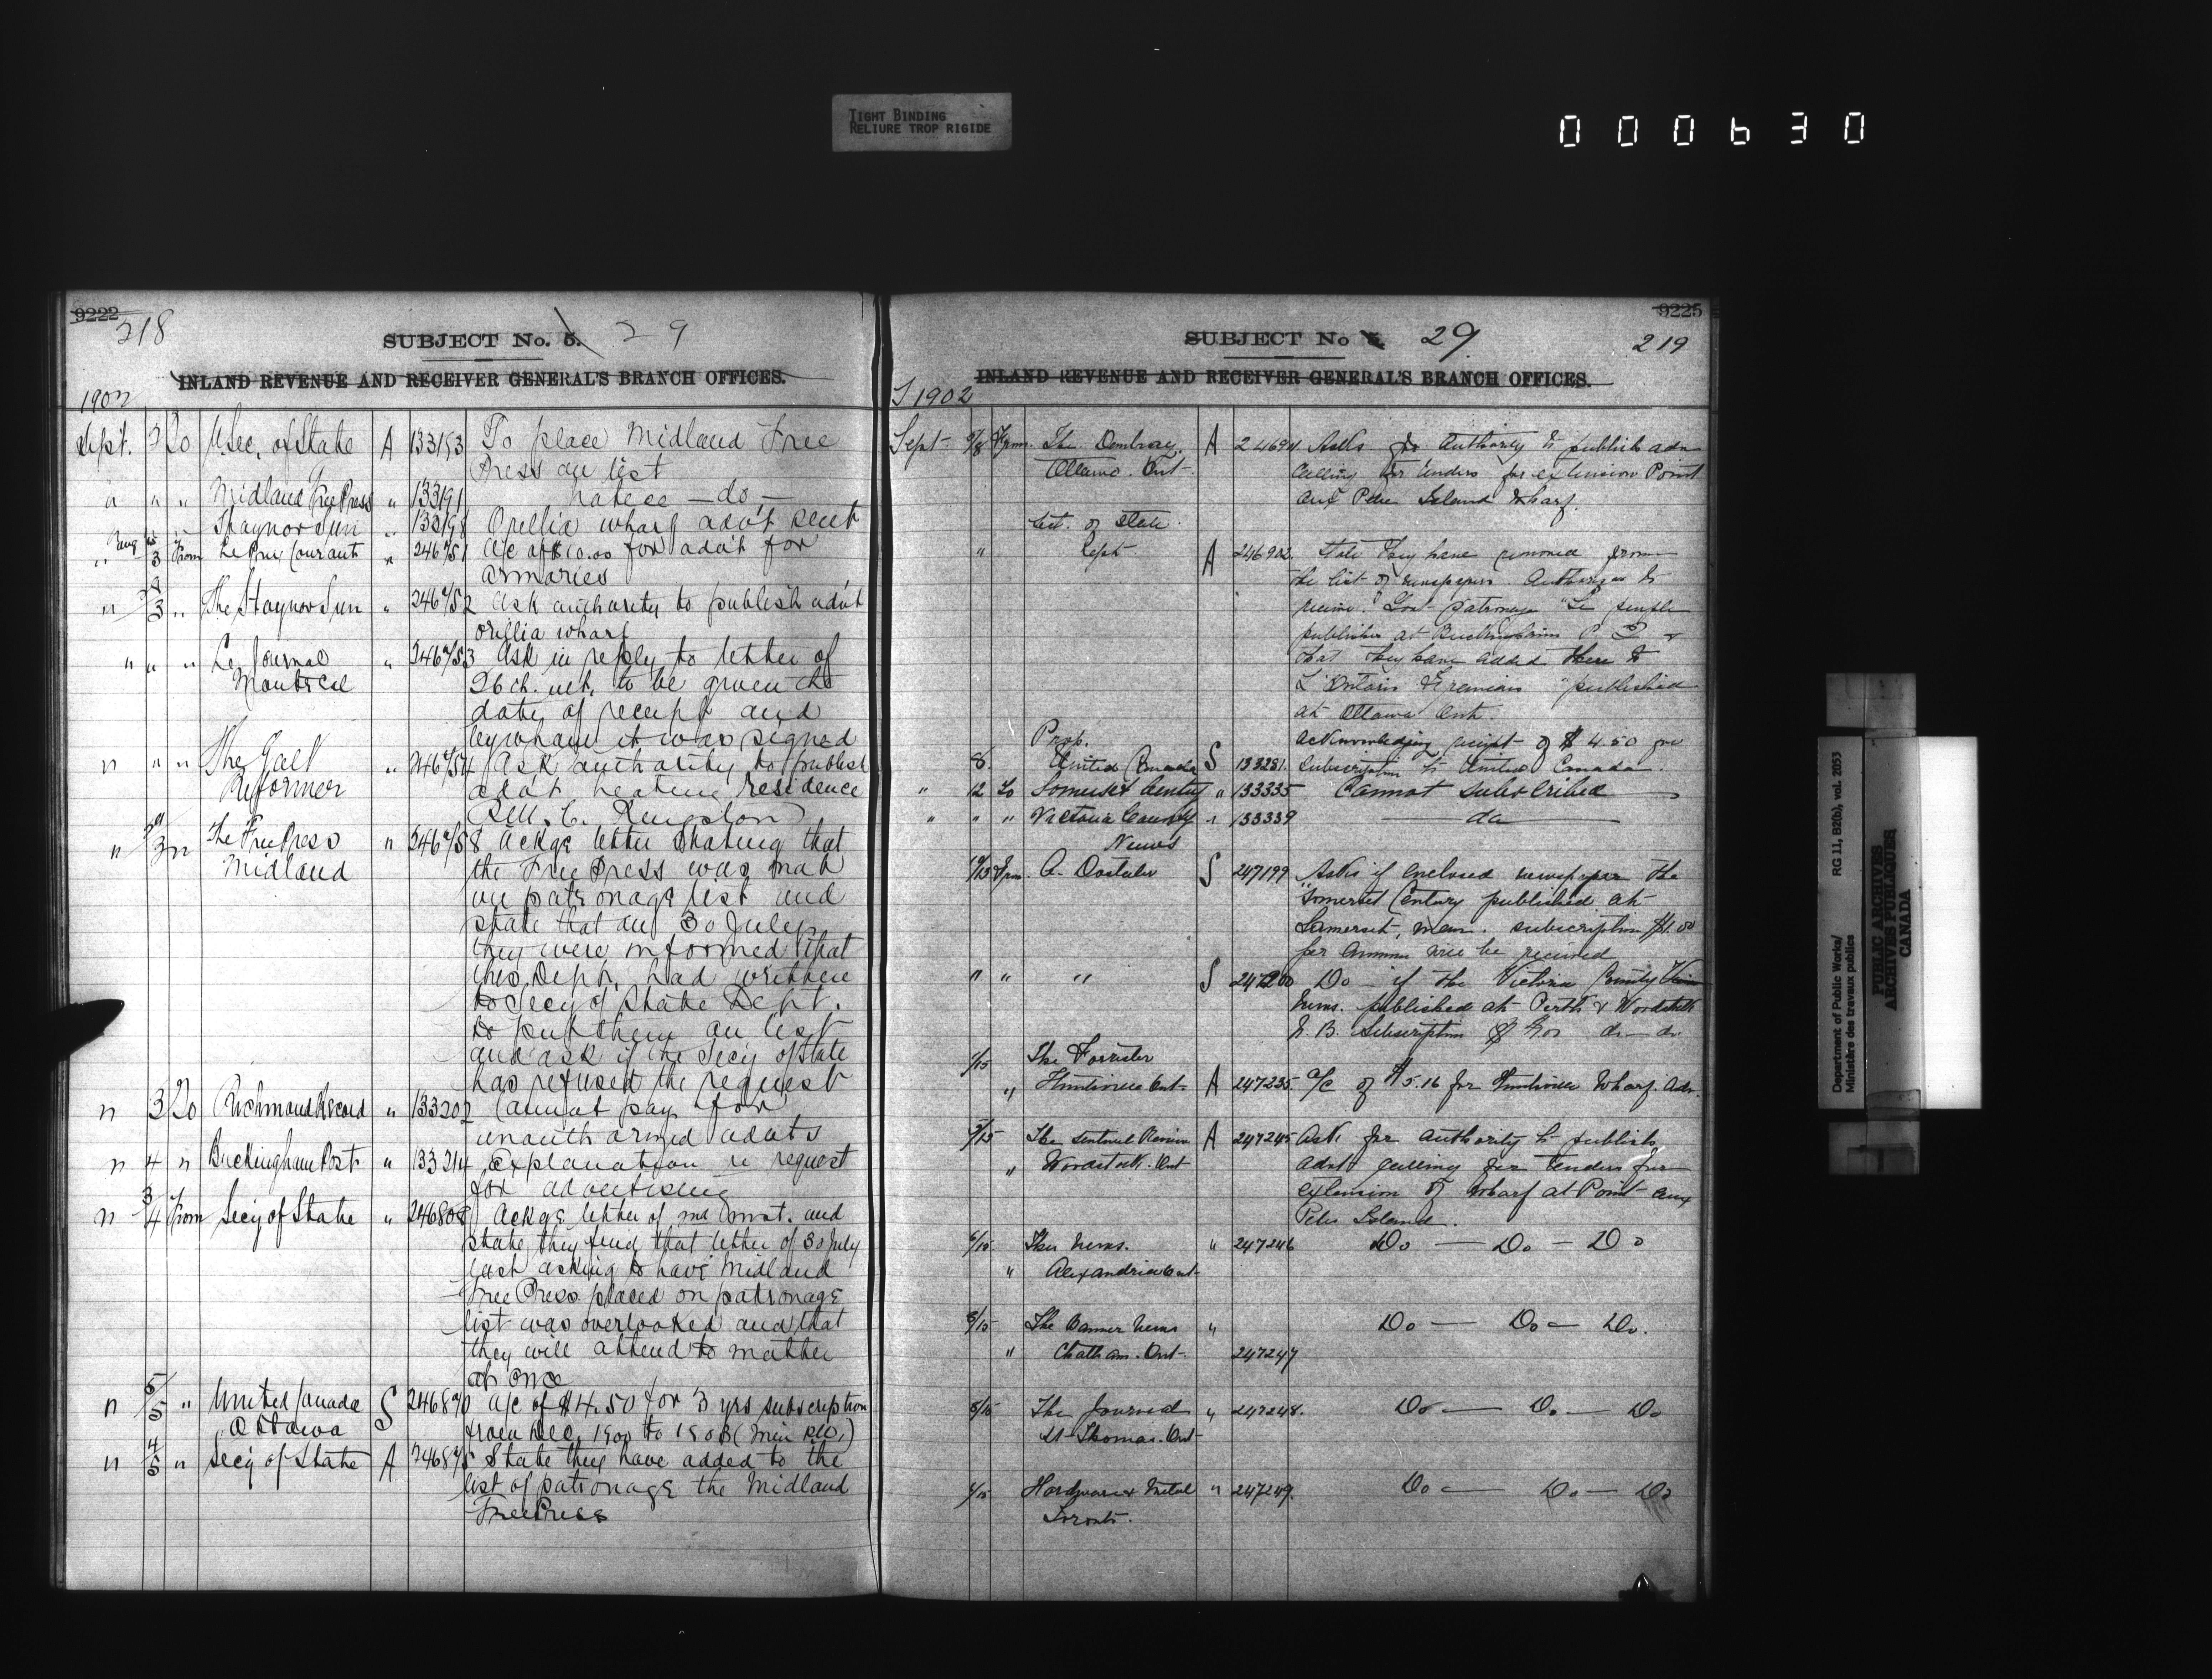 TIGHT BINDING
RELIURE TROP RIGIDE
000630
9222
218
SUBJECT No. 5. 29
INLAND REVENUE AND RECEIVER GENERAL'S BRANCH OFFICES.
1902
Sept. 3 Do U Sec. of State A 133153 To place Midland Free
Press on list
" " " Midland Free Press " 133191 notice — do —
Staynor Sun " 133198 Orillia wharf adv't sent
" 3 From Le Courant " 246751 A/c of $10.00 for adv't for
armories
" 3 " The Staynor Sun " 246752 Ask authority to publish adv't
Orillia wharf
" " " Le Journal " 246753 Ask in reply to letter of
Montreal
26th ult. to be given the
date of receipt and
by whom it was signed
" " " The Galt " 246754 Ask authority to publish
Reformer
adv't heating residence
R.M.C. Kingston
" 3 " The Free Press " 246758 Ackge letter stating that
Midland
the Free Press was not
on patronage list and
state that on 30 July
they were informed that
this Dept. had written
to Secy of State Dept.
to put them on list
and ask if the Secy of State
has refused the request
" 3 Do Richmond Record " 133202 Cannot pay for
unauthorized advts
" 4 " Buckingham Post " 133214 Explanation re request
for advertising
" 3/4 From Secy of State " 246808 Ackge letter of inst. and
state they find that letter of 30 July
last asking to have Midland
Free Press placed on patronage
list was overlooked and that
they will attend to matter
at once
" 5/5 " United Canada S 246890 A/c of $4.50 for 3 yrs subscription
Ottawa
from Dec. 1900 to 1903 (Min P.W.)
" 4/5 " Secy of State A 246875 State they have added to the
list of patronage the Midland
Free Press
9225
SUBJECT No 29
219
INLAND REVENUE AND RECEIVER GENERAL'S BRANCH OFFICES.
1902
Sept 5/8 From The A 246941 Asks for Authority to publish adv
Ottawa Ont
calling for tenders for extension Point
aux Pelee Island Wharf.
Sect. of State
" Dept A 246902 State they have removed from
the list of newspapers Authorized to
receive Govt patronage "Le Temple
published at Buckingham P Q &
that they have added there to
L'Ontario "published
at Ottawa Ont.
Prop. Acknowledging receipt of $4.50 for
8 United Canada S 133281 Subscription to United Canada.
" 12 To Somerset Century " 133335 Cannot subscribe
" " " Victoria County " 133339 — do —
News
10/13 From A. Dostaler S 247199 Asks if enclosed newspaper the
"Somerset Century published at
Somerset, Man. subscription $1.00
per Annum will be received
" " " S 247200 Do — if the Victoria County
News. published at Perth & Woodstock
N. B. Subscription $ do — do
/15 The Forrester
" Huntsville Ont A 247235 A/c of $5.16 for Huntsville Wharf. Adv.
5/15 The Sentinel Review A 247245 Ask for authority to publish
" Woodstock. Ont
Advt calling for tenders for
extension of wharf at Point aux
Pelee Island.
6/15 The News. " 247246 Do — Do — Do
" Alexandria Ont
8/15 The Banner News " Do — Do — Do.
" Chatham. Ont 247247
5/15 The Journal " 247248. Do — Do — Do
St Thomas. Ont
4/15 Hardware & Metal " 247249. Do — Do — Do
Toronto.
Department of Public Works/
Ministère des travaux publics
RG 11, B2(b), vol. 2053
PUBLIC ARCHIVES
ARCHIVES PUBLIQUES
CANADA